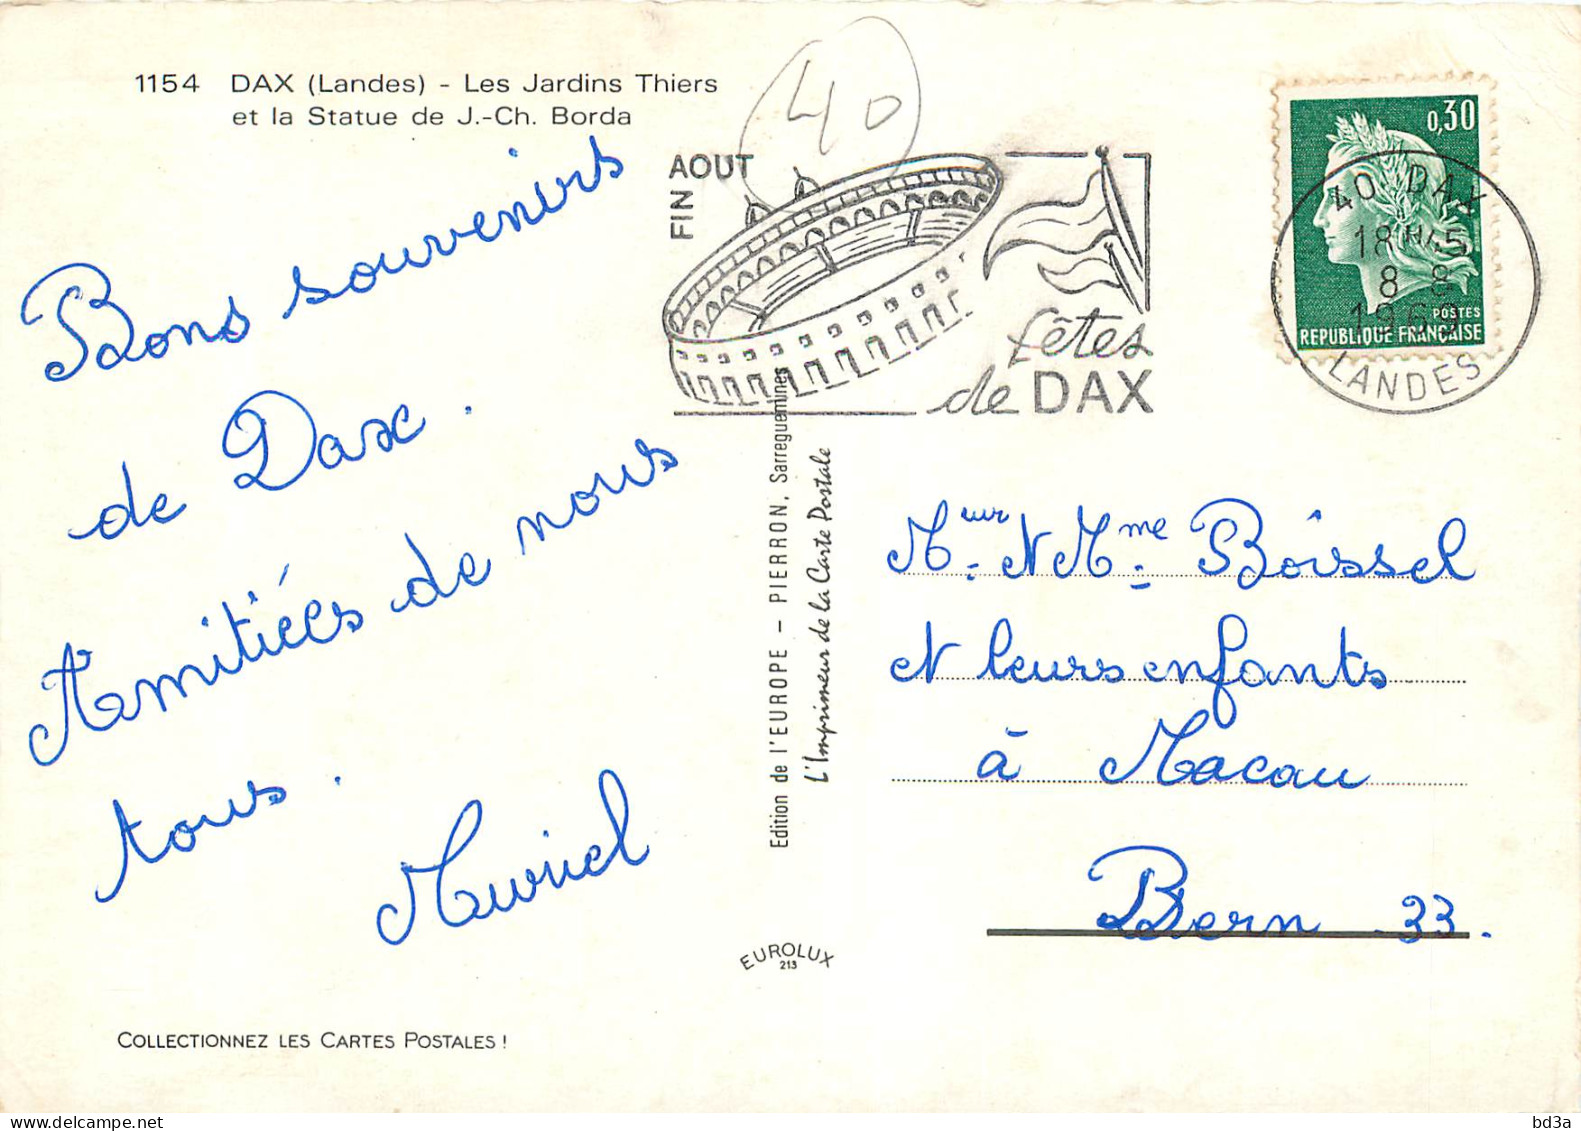 1154 DAX (Landes) - Les Jardins Thiers
et la Statue de J.-Ch. Borda
40
FIN AOUT
fêtes
de DAX
0,30
POSTES
REPUBLIQUE FRANÇAISE
40 DAX
18H45
8 8
1969
LANDES
Bons souvenirs
de Dax.
Amitiées de nous
tous.
Muriel
Edition de l'EUROPE - PIERRON, Sarreguemines
L'Imprimeur de la Carte Postale
Meur et Mme Boissel
et leurs enfants
à Macau
Bern 33.
EUROLUX
213
COLLECTIONNEZ LES CARTES POSTALES !
bd3a